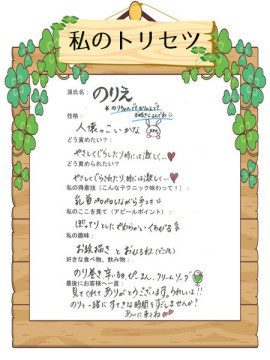 私のトリセツ
源氏名： のりえ
性格：
人懐っこいかな
どう責めたい？：
やさしくぐらしたり、時には激しく…
どう責められたい？：
やさしくぐらされたり、時には激しく…
私の得意技（こんなテクニック味わって！）：
私のここを見て（アピールポイント）：
ぽっちりとしたやわらかいくちびる
私の趣味：
お絵描きとおひるね。
好きな食べ物、飲み物：
のり巻き、辛いもの、ぴーまん、クリームソーダ
最後にお客様へ一言：
見てくれてありがとうございます。うれしいよ!!
のりえと一緒にすてきな時間をすごしませんか！